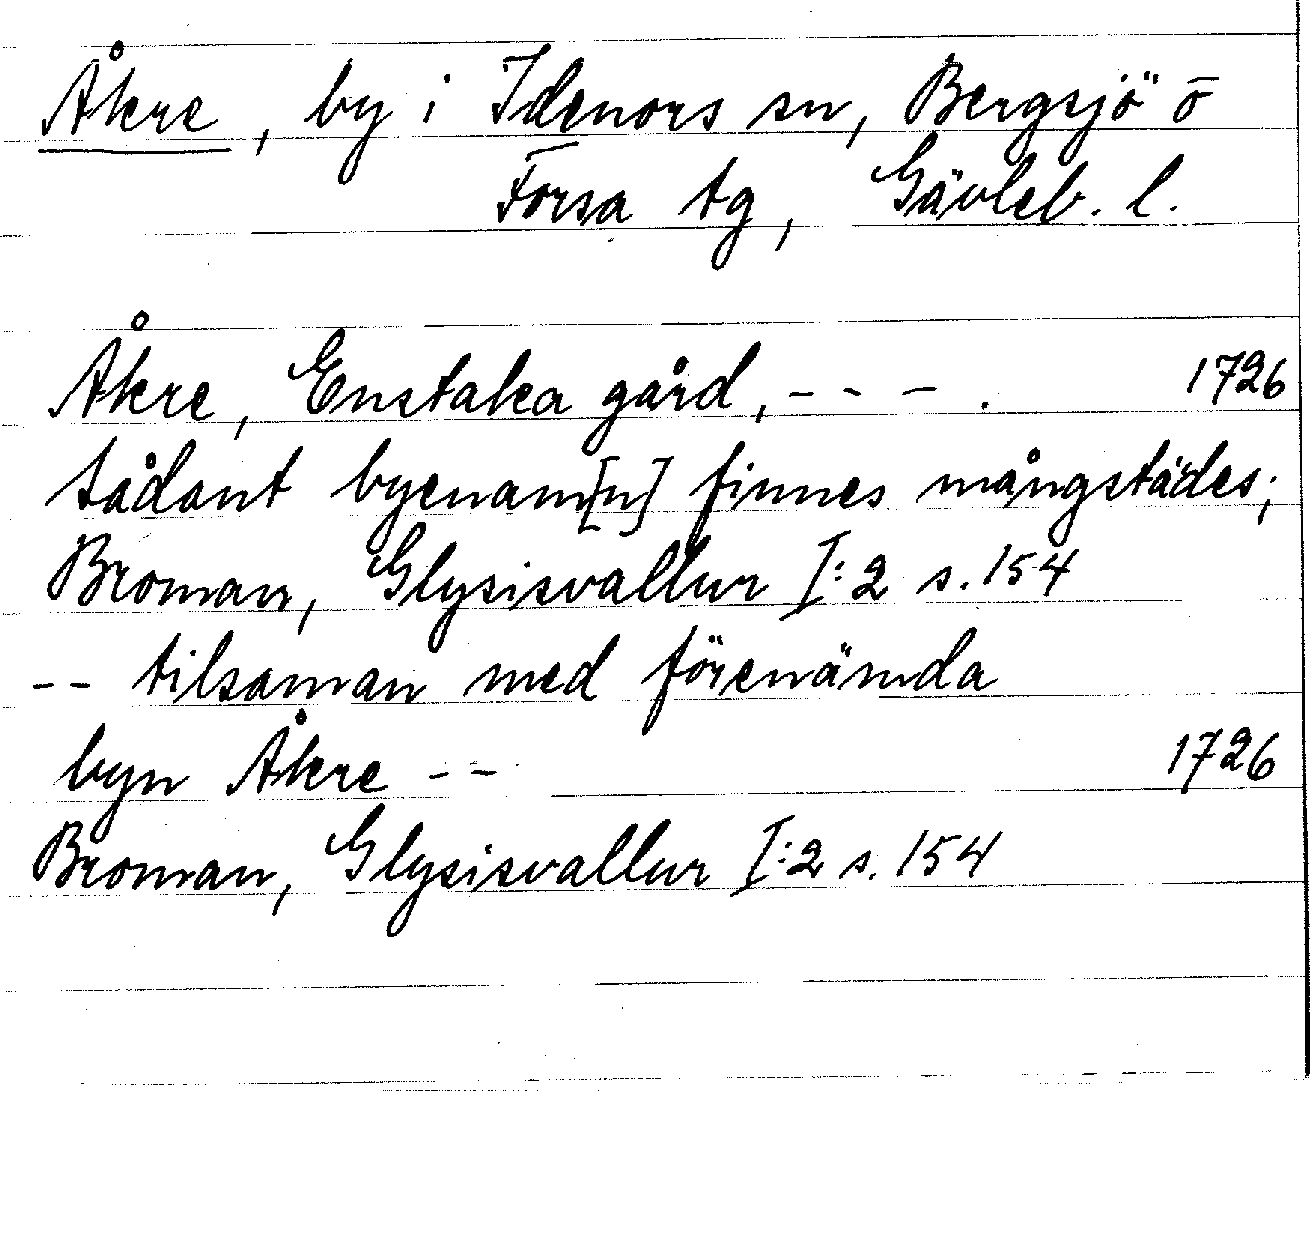 Åkre, by i Idenors sn, Bergsjö o̅
Forsa tg, Gävleb. l.
Åkre, Enstaka gård, - - - . 1726
Sådant byenam[n] finnes mångstädes;
Broman, Glysisvallur I:2 s. 154
-- tilsaman med förenämda
byn Åkre -- 1726
Broman, Glysisvallur I:2 s. 154